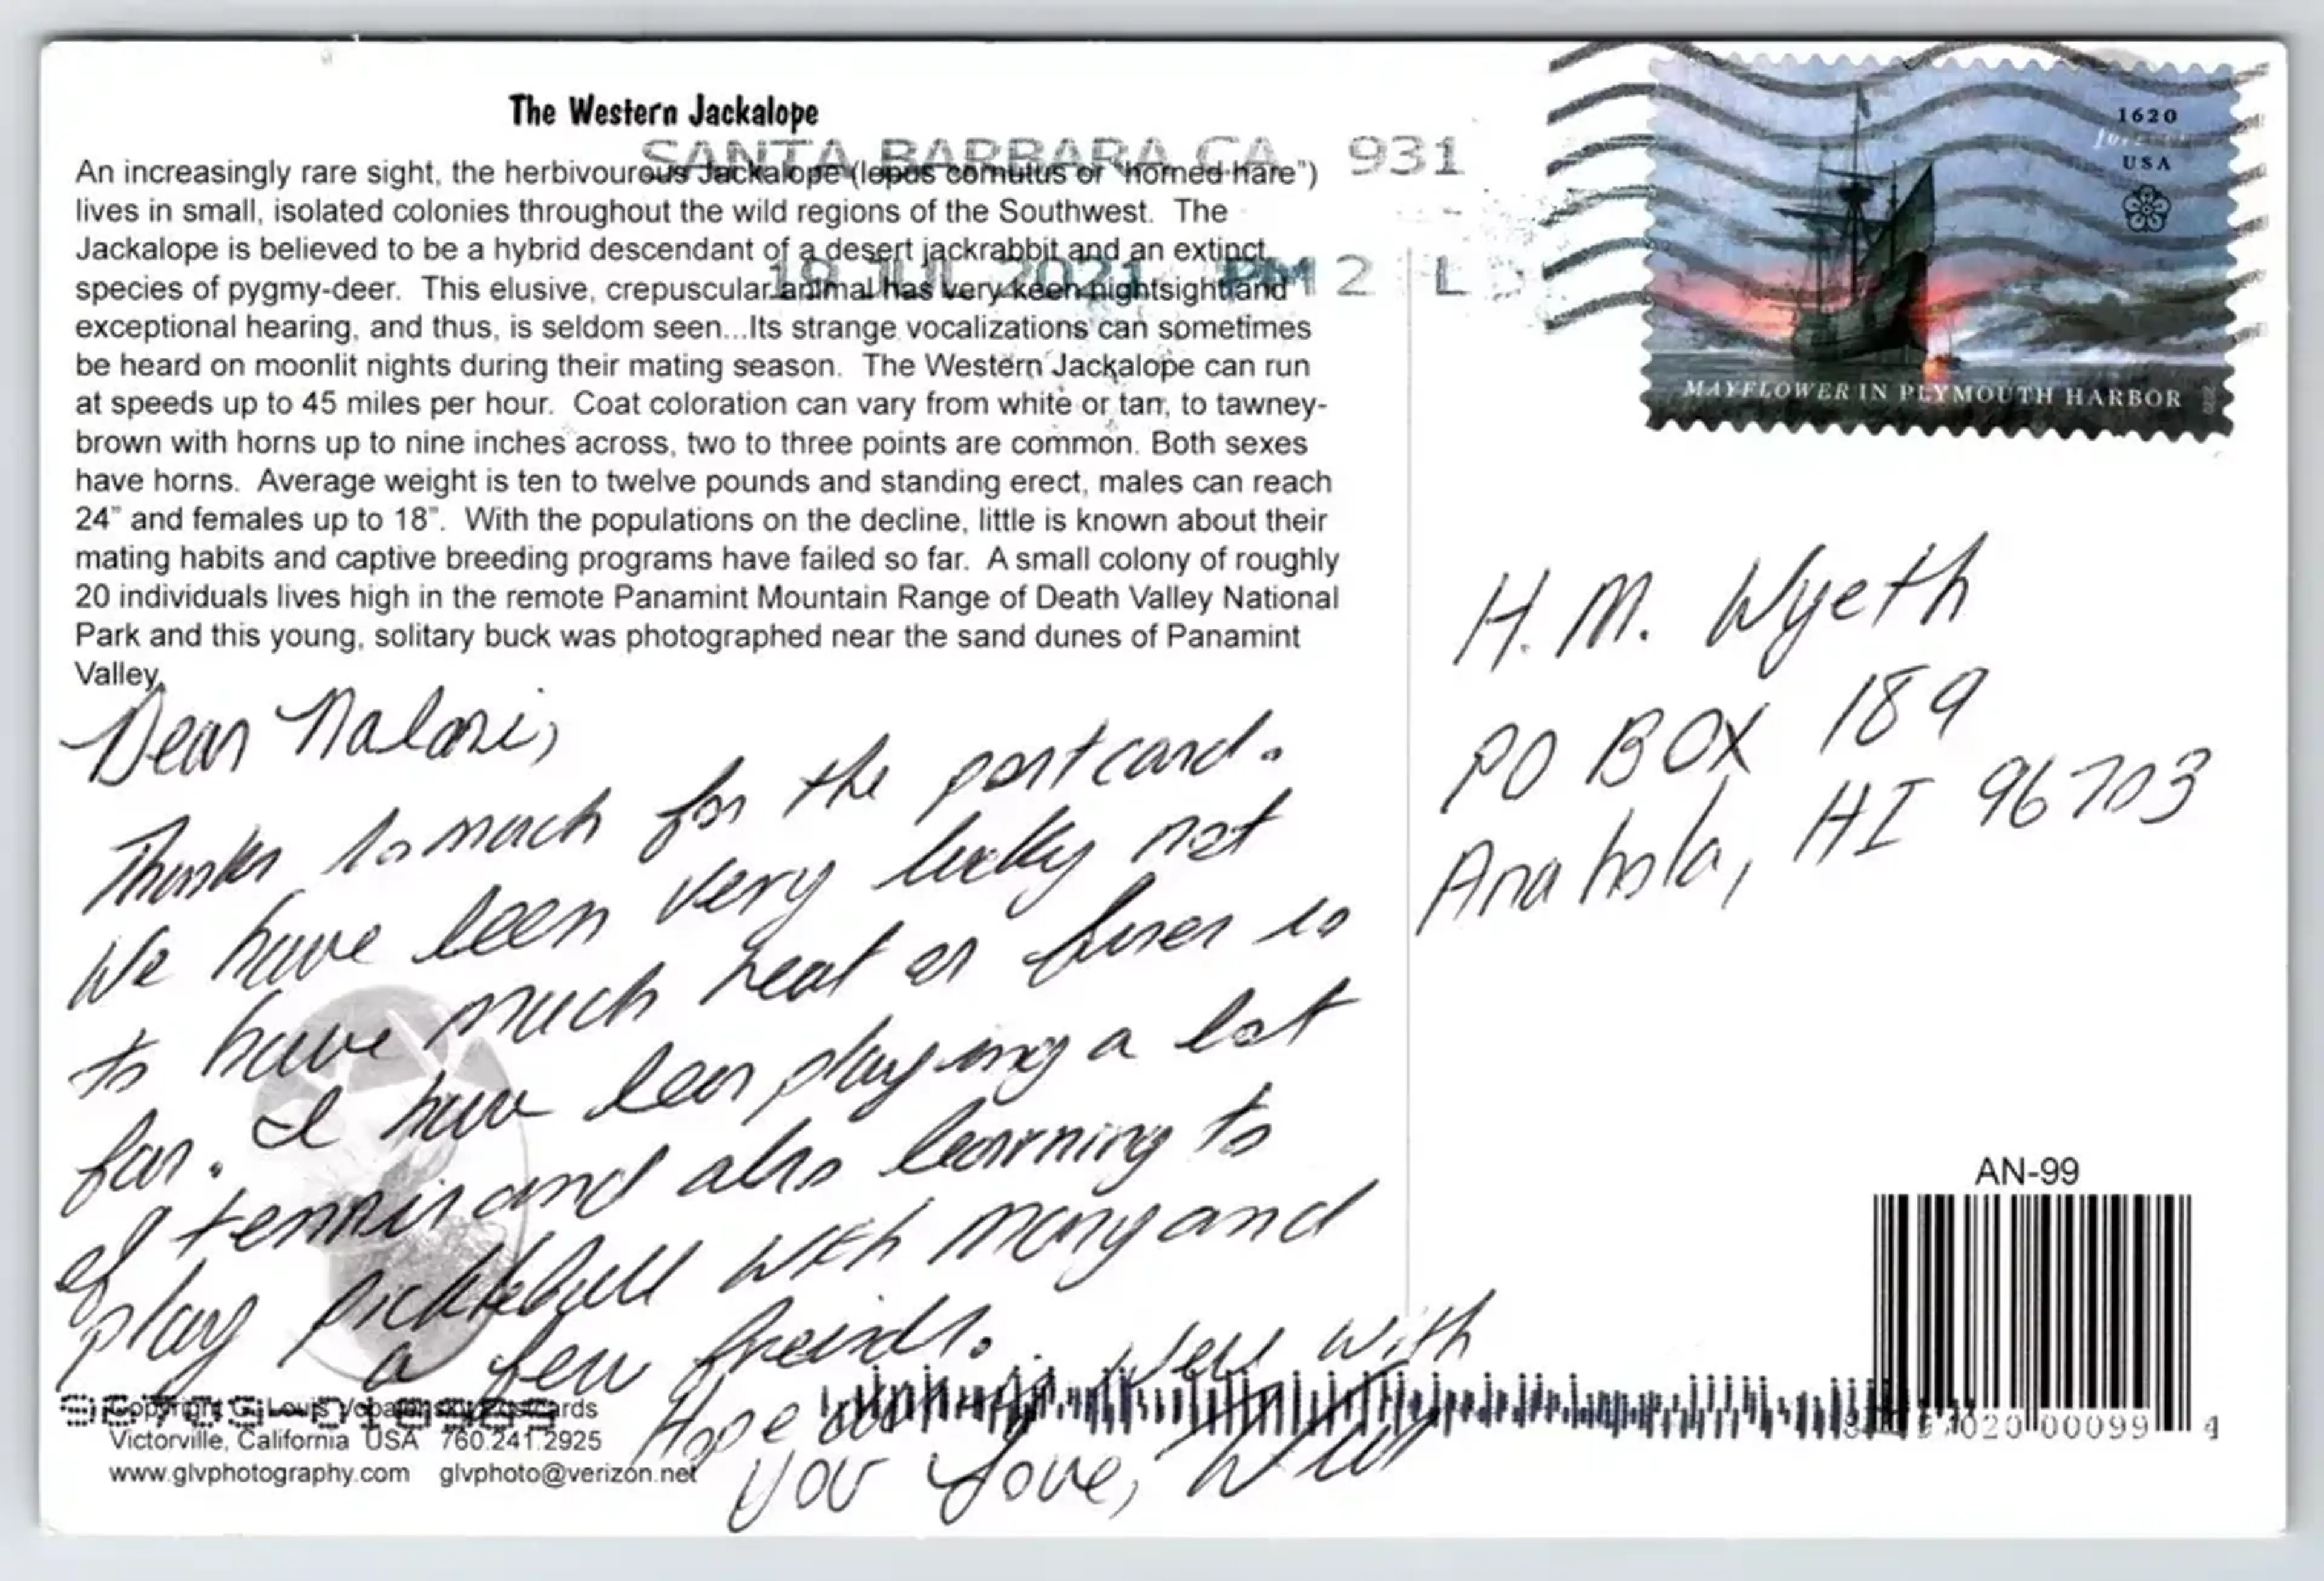 The Western Jackalope
An increasingly rare sight, the herbivourous Jackalope (lepus cornutus or "horned hare")
lives in small, isolated colonies throughout the wild regions of the Southwest. The
Jackalope is believed to be a hybrid descendant of a desert jackrabbit and an extinct
species of pygmy-deer. This elusive, crepuscular animal has very keen nightsight and
exceptional hearing, and thus, is seldom seen...Its strange vocalizations can sometimes
be heard on moonlit nights during their mating season. The Western Jackalope can run
at speeds up to 45 miles per hour. Coat coloration can vary from white or tan, to tawney-
brown with horns up to nine inches across, two to three points are common. Both sexes
have horns. Average weight is ten to twelve pounds and standing erect, males can reach
24" and females up to 18". With the populations on the decline, little is known about their
mating habits and captive breeding programs have failed so far. A small colony of roughly
20 individuals lives high in the remote Panamint Mountain Range of Death Valley National
Park and this young, solitary buck was photographed near the sand dunes of Panamint
Valley.
SANTA BARBARA CA 931
19 JUL 2021 PM 2 L
1620
USA
MAYFLOWER IN PLYMOUTH HARBOR
Dear
Thanks so much for the postcard.
We have been very lucky not
to have much heat or fires so
far. I have been playing a lot
of tennis and also learning to
play pickleball with Mary and
a few freinds.
Hope well with
you Love,
H.M. Wyeth
PO BOX 189
Anahola, HI 96703
AN-99
Victorville, California USA 760.241.2925
www.glvphotography.com glvphoto@verizon.net